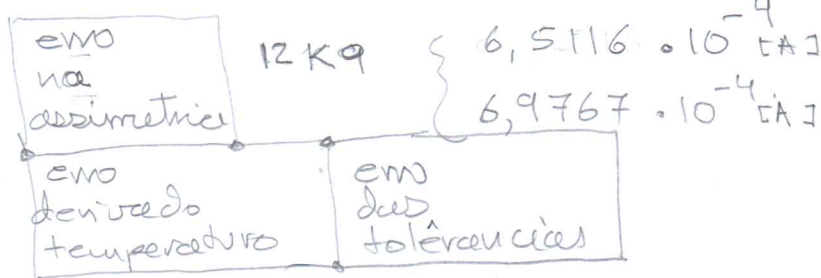 erro
na
assimetria
12K9 { 6,5116 . 10^-4 [A]
6,9767 . 10^-4 [A]
erro
derivado
temperatura
erro
das
tolêrancias